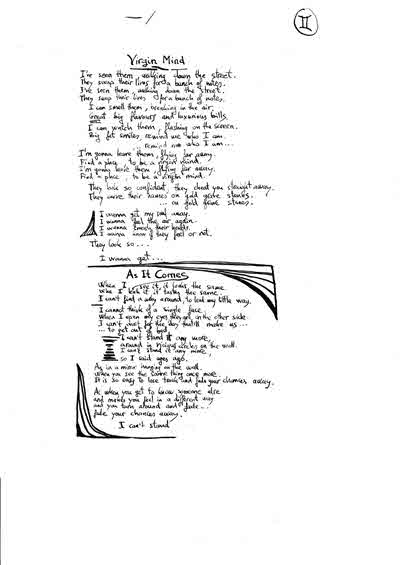 II
Virgin Mind
I've seen them, walking down the street.
They swap their lives for a bunch of notes.
I've seen them, walking down the street.
They swap their lives for a bunch of notes.
I can smell them, breaking in the air.
Great big flavours and luxurious balls.
I can watch them, flashing on the screen.
Big fat smiles, remind me who I am.
... remind me who I am...
I'm gonna leave them, flying far away.
Find a place, to be a virgin mind.
I'm gonna leave them flying far away.
Find a place, to be a virgin mind.
They look so confident, they cheat you straight away.
They carve their names on gold grave stones.
... on gold grave stones.
I wanna get my soul away.
I wanna feel the air again.
I wanna their heads.
I wanna know if they feel or not.
They look so...
I wanna get...
As It Comes
When I see it, it looks the same
When I look at it tastes the same.
I can't find a way around, to lead my little way.
I cannot think of a single face.
When I open my eyes they are in the other side.
I can't wait for the day that'll make us...
... to get out of bed
I can't stand it any more,
around in vicious circles on the wall.
I can't stand it any more,
so I said ages ago.
As in a mirror hanging on the wall.
When you see the same thing once more.
It is so easy to lose touch and fade your chances away.
As when you get to know someone else
and makes you feel in a different way
and you turn around and fade...
fade your chances away.
I can't stand